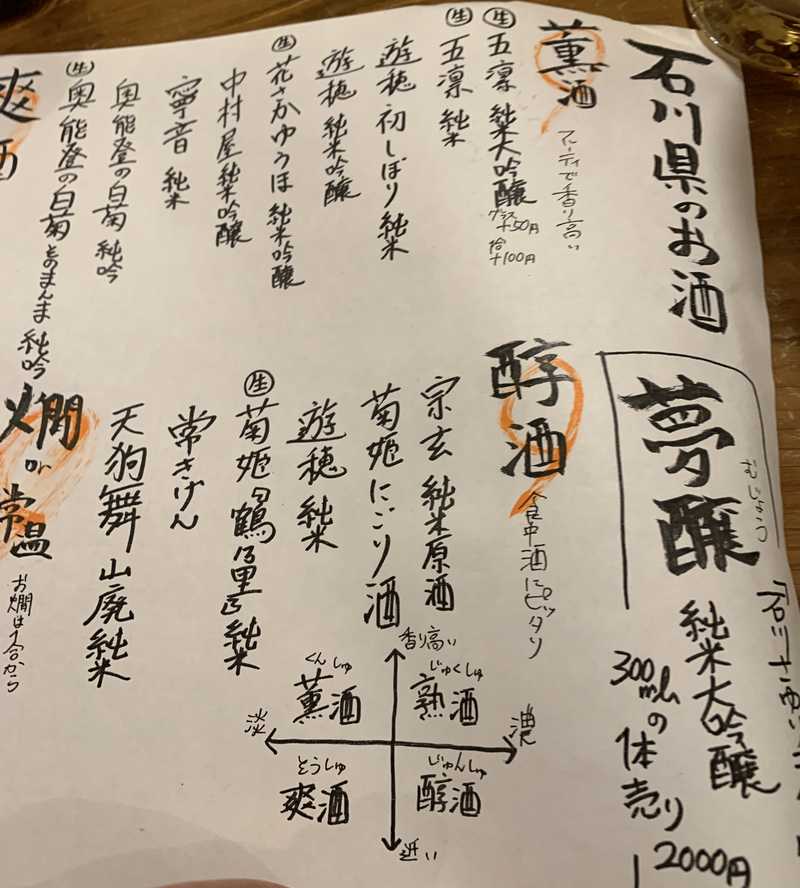 石川県のお酒
薫酒
フルーティで香り高い
生 五凛 純米大吟醸
グラス+50円
1合+100円
生 五凛 純米
遊穂 初しぼり 純米
遊穂 純米吟醸
生 花さかゆうほ 純米吟醸
中村屋 純米吟醸
寧音 純米
奥能登の白菊 純吟
生 奥能登の白菊 そのまんま 純吟
爽酒
夢醸
むじょう
純米大吟醸
「石川さゆり
300mlの体売り
2000円
醇酒
食中酒にピッタリ
宗玄 純米原酒
菊姫 にごり酒
遊穂 純米
生 菊姫 鶴乃里 純米
常きげん
天狗舞 山廃純米
燗か常温
お燗は1合から
香り高い
くんしゅ
薫酒
じゅくしゅ
熟酒
淡
濃
そうしゅ
爽酒
じゅんしゅ
醇酒